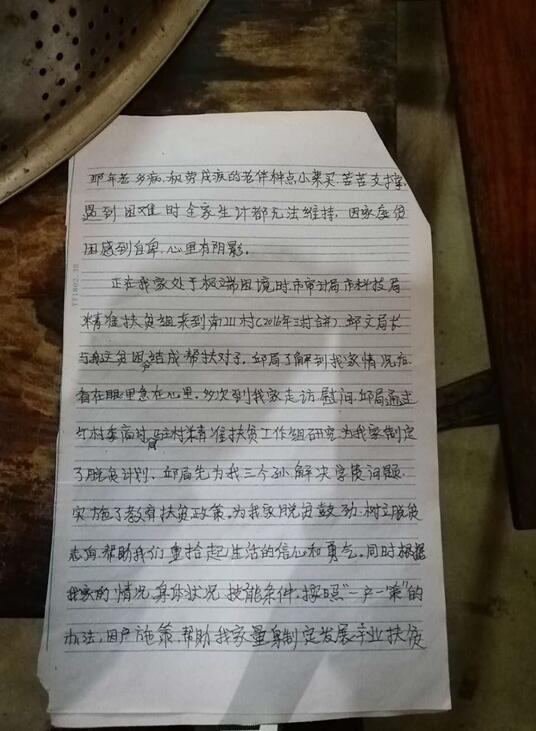 那年老多病、积劳成疾的老伴种点小菜买、苦苦支撑,
遇到困难时全家生计都无法维持,因家庭贫
困感到自卑、心里有阴影。
正在我家处于极端困境时市审计局市科技局
精准扶贫组来到南川村(2016年3村合并)邱文局长
与我这贫困结成帮扶对子,邱局了解到我家情况后
看在眼里急在心里,多次到我家走访、慰问、邱局通过
与村委商讨、驻村精准扶贫工作组研究为我家制定
了脱贫计划,邱局先为我三个孙解决学费问题,
实施了教育扶贫政策,为我家脱贫鼓劲、树立脱贫
志向、帮助我们重拾起生活的信心和勇气,同时根据
我家的情况、身体状况、技能条件,按照"一户一策"的
办法,因户施策、帮助我家量身制定发展产业扶贫
YF1802-38